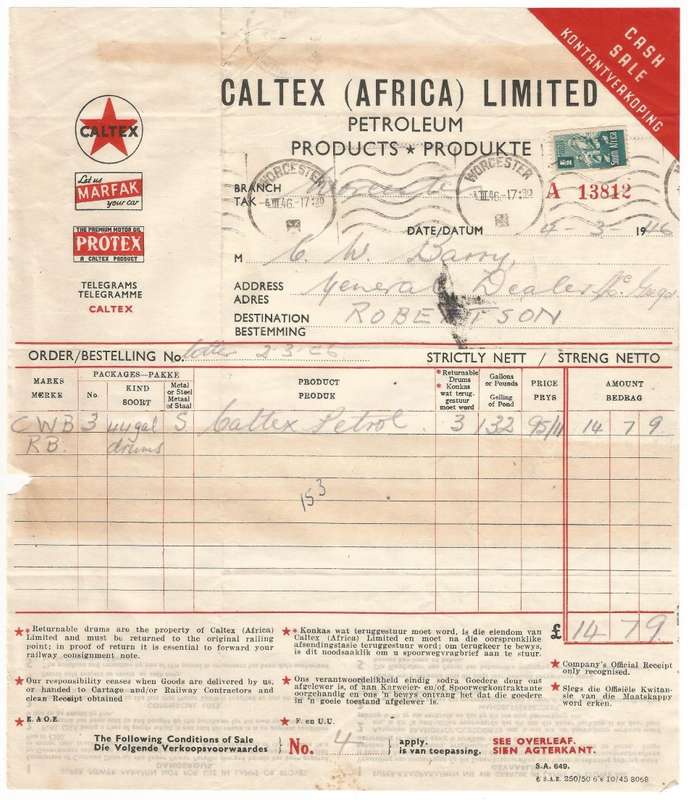 CASH
SALE
KONTANTVERKOPING
CALTEX (AFRICA) LIMITED
PETROLEUM
PRODUCTS ★ PRODUKTE
CALTEX
Let us
MARFAK
your car
THE PREMIUM MOTOR OIL
PROTEX
A CALTEX PRODUCT
TELEGRAMS
TELEGRAMME
CALTEX
WORCESTER
WORCESTER
South Africa
BRANCH
TAK
Worcester
A 13812
DATE/DATUM 4-3-1946
M C. W. Barry,
ADDRESS
ADRES
General Dealer
DESTINATION
BESTEMMING
ROBERTSON
ORDER/BESTELLING No. letter 2-3-
STRICTLY NETT / STRENG NETTO
MARKS
MERKE
PACKAGES—PAKKE
No.
KIND
SOORT
Metal
or Steel
Metaal
of Staal
PRODUCT
PRODUK
★ Returnable
Drums
★ Konkas
wat terug-
gestuur
moet word
Gallons
or Pounds
Gelling
of Pond
PRICE
PRYS
AMOUNT
BEDRAG
CWB 3 44 gal S Caltex Petrol 3 132 95/11 14 7 9
RB. drums
15 3
£ 14 7 9
★★ Returnable drums are the property of Caltex (Africa)
Limited and must be returned to the original railing
point; in proof of return it is essential to forward your
railway consignment note.
★★ Konkas wat teruggestuur moet word, is die eiendom van
Caltex (Africa) Limited en moet na die oorspronklike
afsendingstasie teruggestuur word; om terugkeer te bewys,
is dit noodsaaklik om u spoorwegvragbrief aan te stuur.
★ Our responsibility ceases when Goods are delivered by us,
or handed to Cartage and/or Railway Contractors and
clean Receipt obtained
★ Ons verantwoordelikheid eindig sodra Goedere deur ons
afgelewer is, of aan Karweier- en/of Spoorwegkontraktante
oorgehandig en ons 'n bewys ontvang het dat die goedere
in 'n goeie toestand afgelewer is.
★ Company's Official Receipt
only recognised.
★ Slegs die Offisiële Kwitan-
sie van die Maatskappy
word erken.
★ E. & O.E.
★ F. en U.U.
The Following Conditions of Sale
Die Volgende Verkoopsvoorwaardes
No. 4
apply.
is van toepassing.
SEE OVERLEAF.
SIEN AGTERKANT.
S.A. 649.
S.A.E. 250/50 6's 10/45 8068